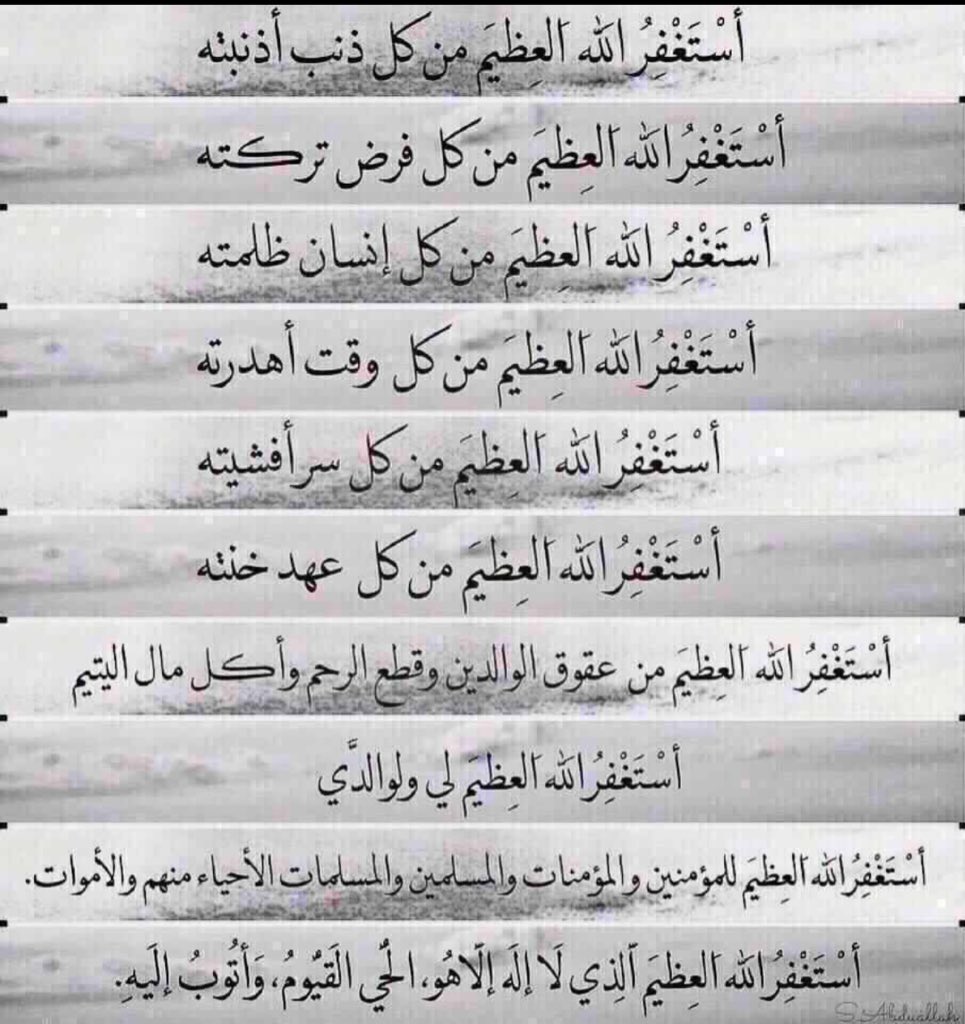 أَسْتَغْفِرُ الله َالعِظيَم من كل ذنب أذنبته
أَسْتَغْفِرُ الله َالعِظيَم من كل فرض تركته
أَسْتَغْفِرُ الله َالعِظيَم من كل إنسان ظلمته
أَسْتَغْفِرُ الله َالعِظيَم من كل وقت أهدرته
أَسْتَغْفِرُ الله َالعِظيَم من كل سر أفشيته
أَسْتَغْفِرُ الله َالعِظيَم من كل عهد خنته
أَسْتَغْفِرُ الله َالعِظيَم من عقوق الوالدين وقطع الرحم وأكل مال اليتيم
أَسْتَغْفِرُ الله َالعِظيَم لي ولوالدَّي
أَسْتَغْفِرُ الله َالعِظيَم للمؤمنين والمؤمنات والمسلمين والمسلمات الأحياء منهم والأموات.
أَسْتَغْفِرُ الله َالعِظيَم َالِذي لَا إلَه إلَاهُو، الْحَّي الَقيُّومُ، وَأتُوبُ إلَيهِ.
S. Abduallah